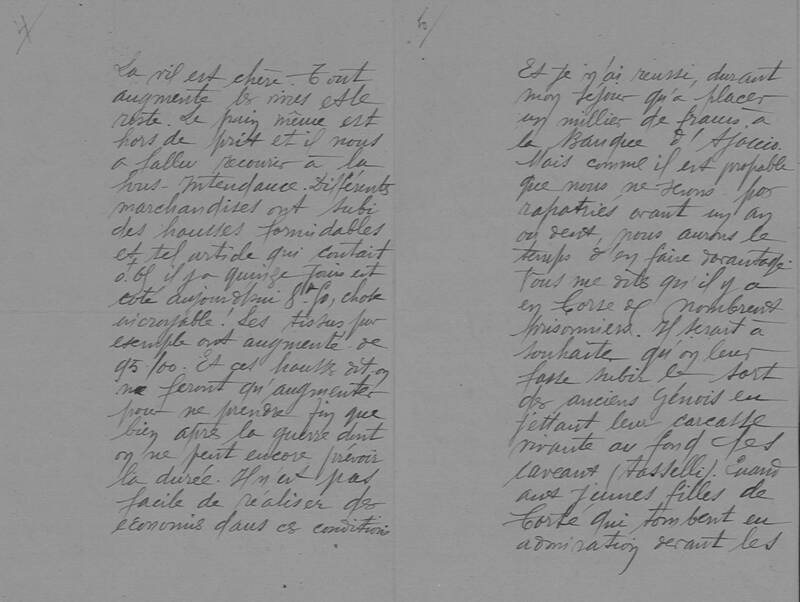 4/
La vil est chère. Tout
augmente les vivres et le
reste. Le pain même est
hors de prix et il nous
a fallu recourir à la
Sous-Intendance. Différentes
marchandises ont subi
des hausses formidables
et tel article qui coutait
il y a quinze jours est
coté aujourd'hui chose
incroyable! Les tissus par
exemple ont augmenté de
95 %. Et ces hausse dit-on
ne feront qu'augmenter
pour ne prendre fin que
bien après la guerre dont
on ne peut encore prévoir
la durée. Il n'est pas
facile de réaliser des
économies dans ces conditions
Et je n'ai reussi, durant
mon séjour qu'à placer
un millier de francs à
la Banque d'Ajaccio.
Mais comme il est probable
que nous ne serons pas
rapatriés avant un an
ou deux, nous aurons le
temps d'en faire davantage.
Vous me dites qu'il y a
en Corse de nombreux
prisonniers. Il serait à
souhaiter qu'on leur
fasse subir le sort
des anciens Génois en
jettant leur carcasse
vivante au fond des
caveaux (tasselli). Quand
aux jeunes filles de
Corse qui tombent en
admiration devant les